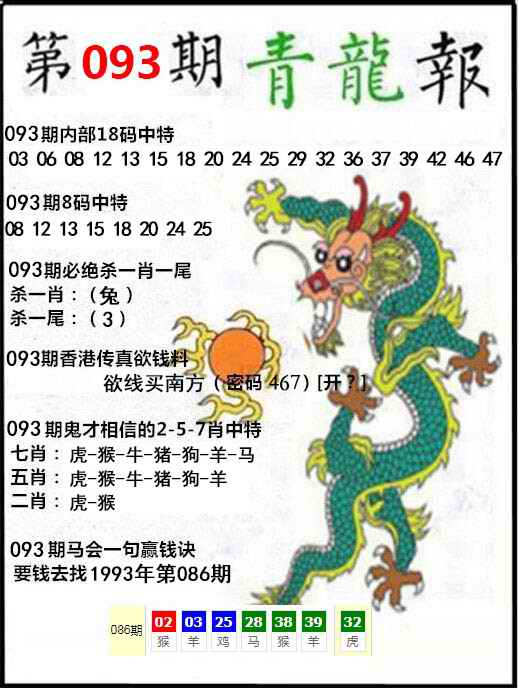 第093期青龍報
093期内部18码中特
03 06 08 12 13 15 18 20 24 25 29 32 36 37 39 42 46 47
093期8码中特
08 12 13 15 18 20 24 25
093期必绝杀一肖一尾
杀一肖：（兔）
杀一尾：（3）
093期香港传真欲钱料
欲线买南方（密码 467）[开？]
093期鬼才相信的2-5-7肖中特
七肖：虎-猴-牛-猪-狗-羊-马
五肖：虎-猴-牛-猪-狗-羊
二肖：虎-猴
093期马会一句赢钱诀
要钱去找1993年第086期
086期 02 03 25 28 38 39 32
猴 羊 鸡 马 猴 羊 虎